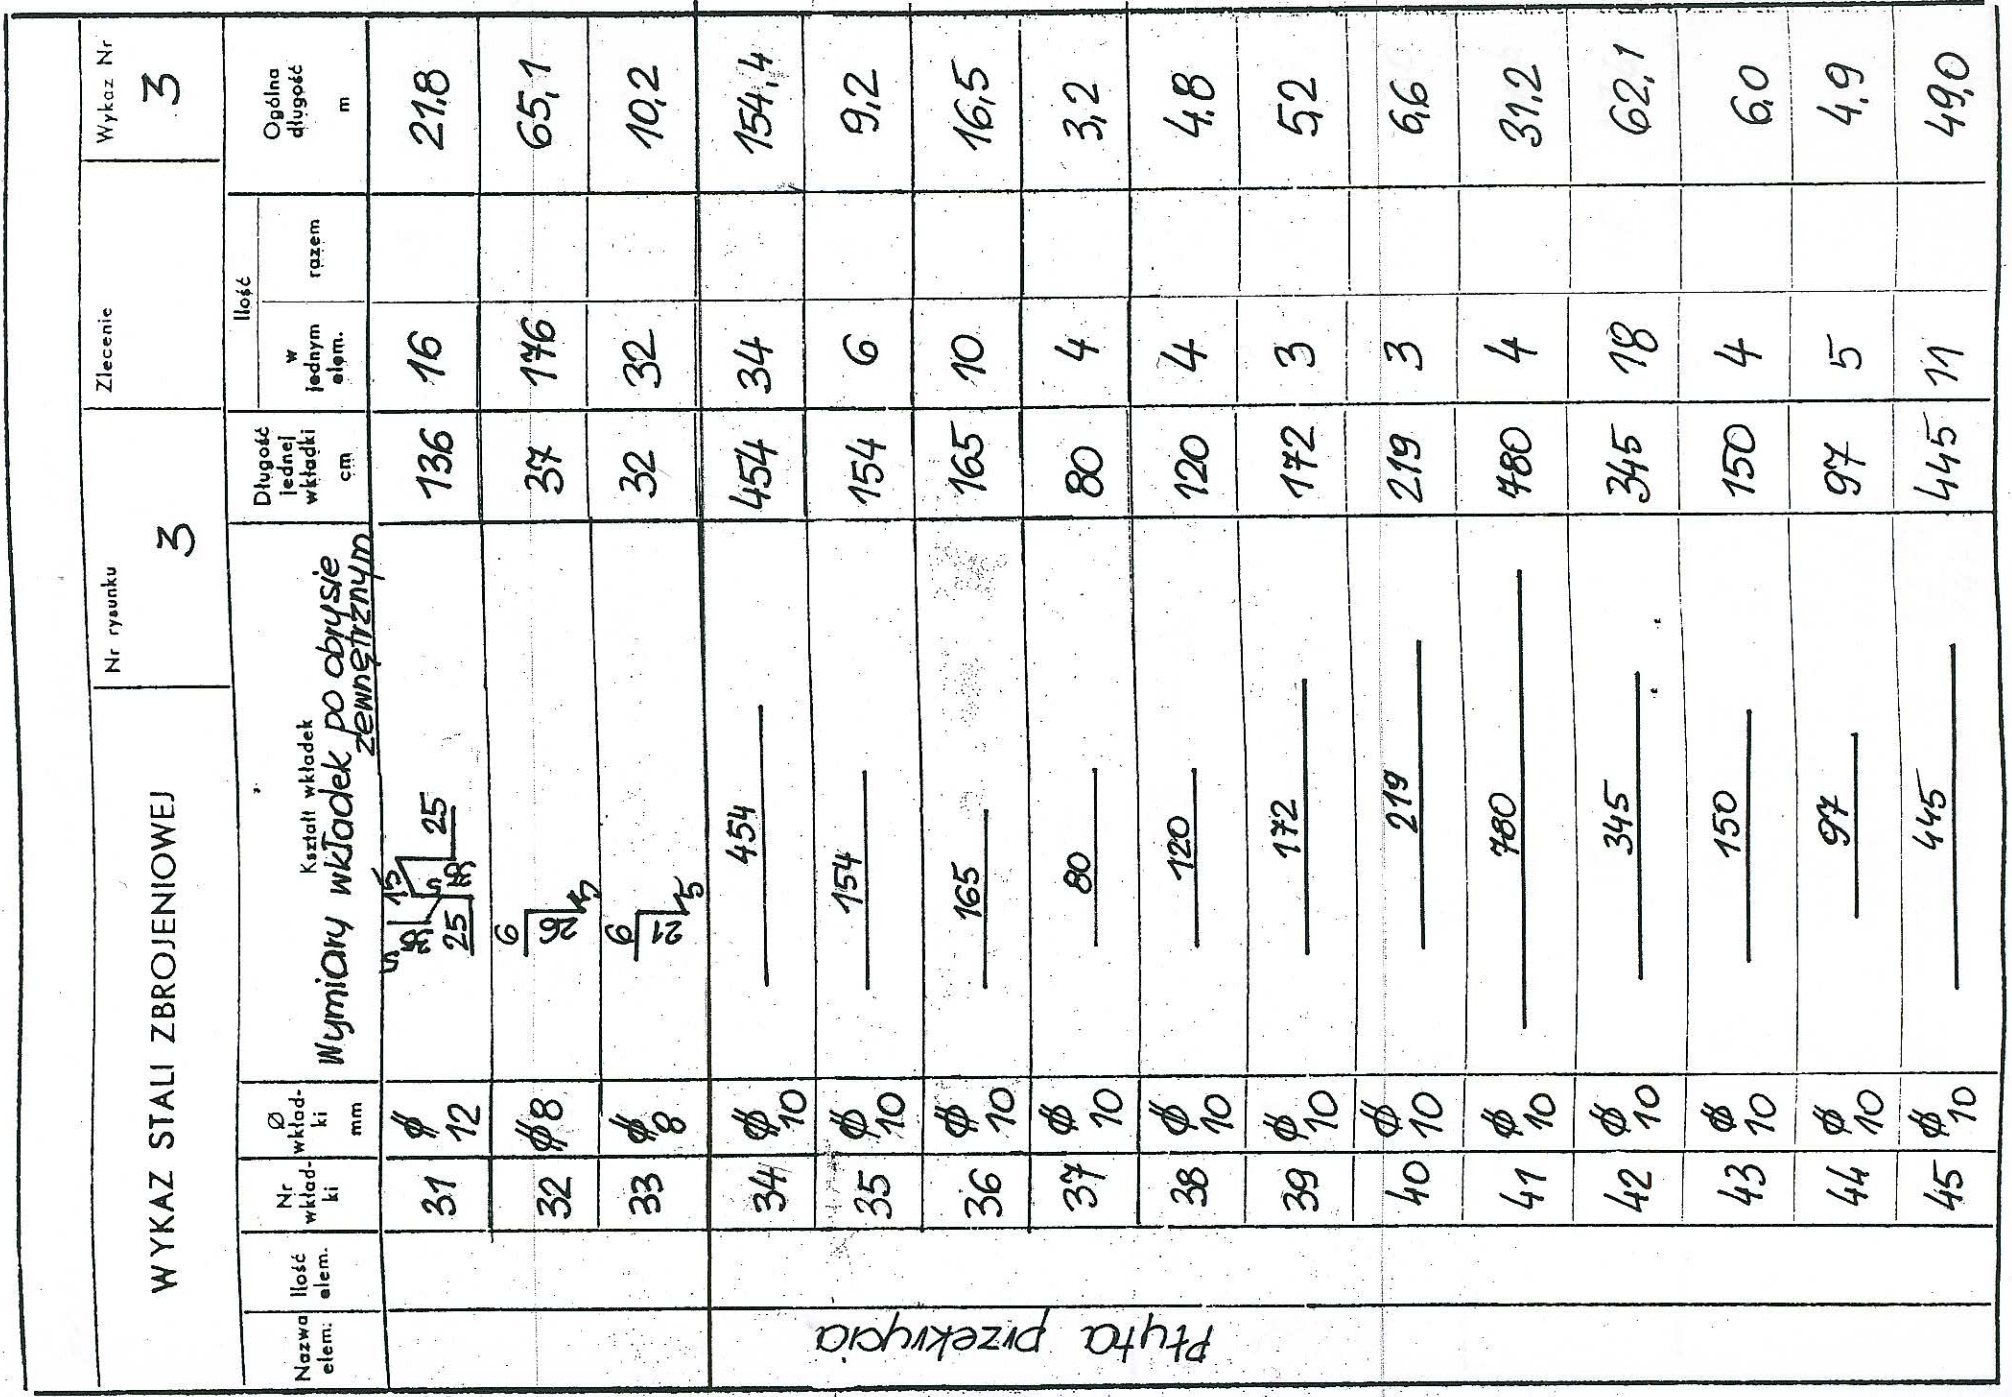 WYKAZ STALI ZBROJENIOWEJ
Nr rysunku
3
Zlecenie
Wykaz Nr
3
Nazwa elem.
Ilość elem.
Nr wkład- ki
Ø wkład- ki mm
Kształt wkładek
Wymiary wkładek po obrysie zewnętrznym
Długość jednej wkładki cm
Ilość
w jednym elem.
razem
Ogólna długość m
31 ø 12 25 5 15 5 25 136 16 21,8
32 ø 8 6 26 5 37 176 65,1
33 ø 8 6 21 5 32 32 10,2
Płyta przekrycia
34 ø 10 454 454 34 154,4
35 ø 10 154 154 6 9,2
36 ø 10 165 165 10 16,5
37 ø 10 80 80 4 3,2
38 ø 10 120 120 4 4,8
39 ø 10 172 172 3 5,2
40 ø 10 219 219 3 6,6
41 ø 10 780 780 4 31,2
42 ø 10 345 345 18 62,1
43 ø 10 150 150 4 6,0
44 ø 10 97 97 5 4,9
45 ø 10 445 445 11 49,0